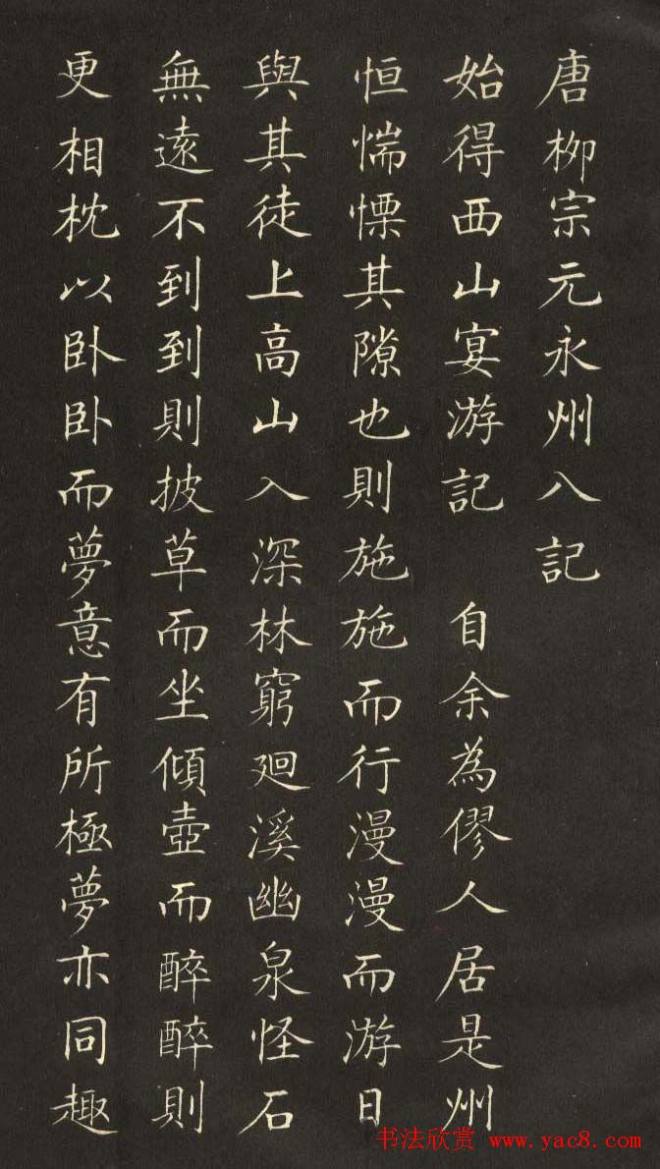 唐柳宗元永州八記
始得西山宴游記 自余為僇人居是州
恒惴慄其隙也則施施而行漫漫而游日
與其徒上高山入深林窮廻溪幽泉怪石
無遠不到到則披草而坐傾壺而醉醉則
更相枕以卧卧而夢意有所極夢亦同趣
书法欣赏 www.yac8.com